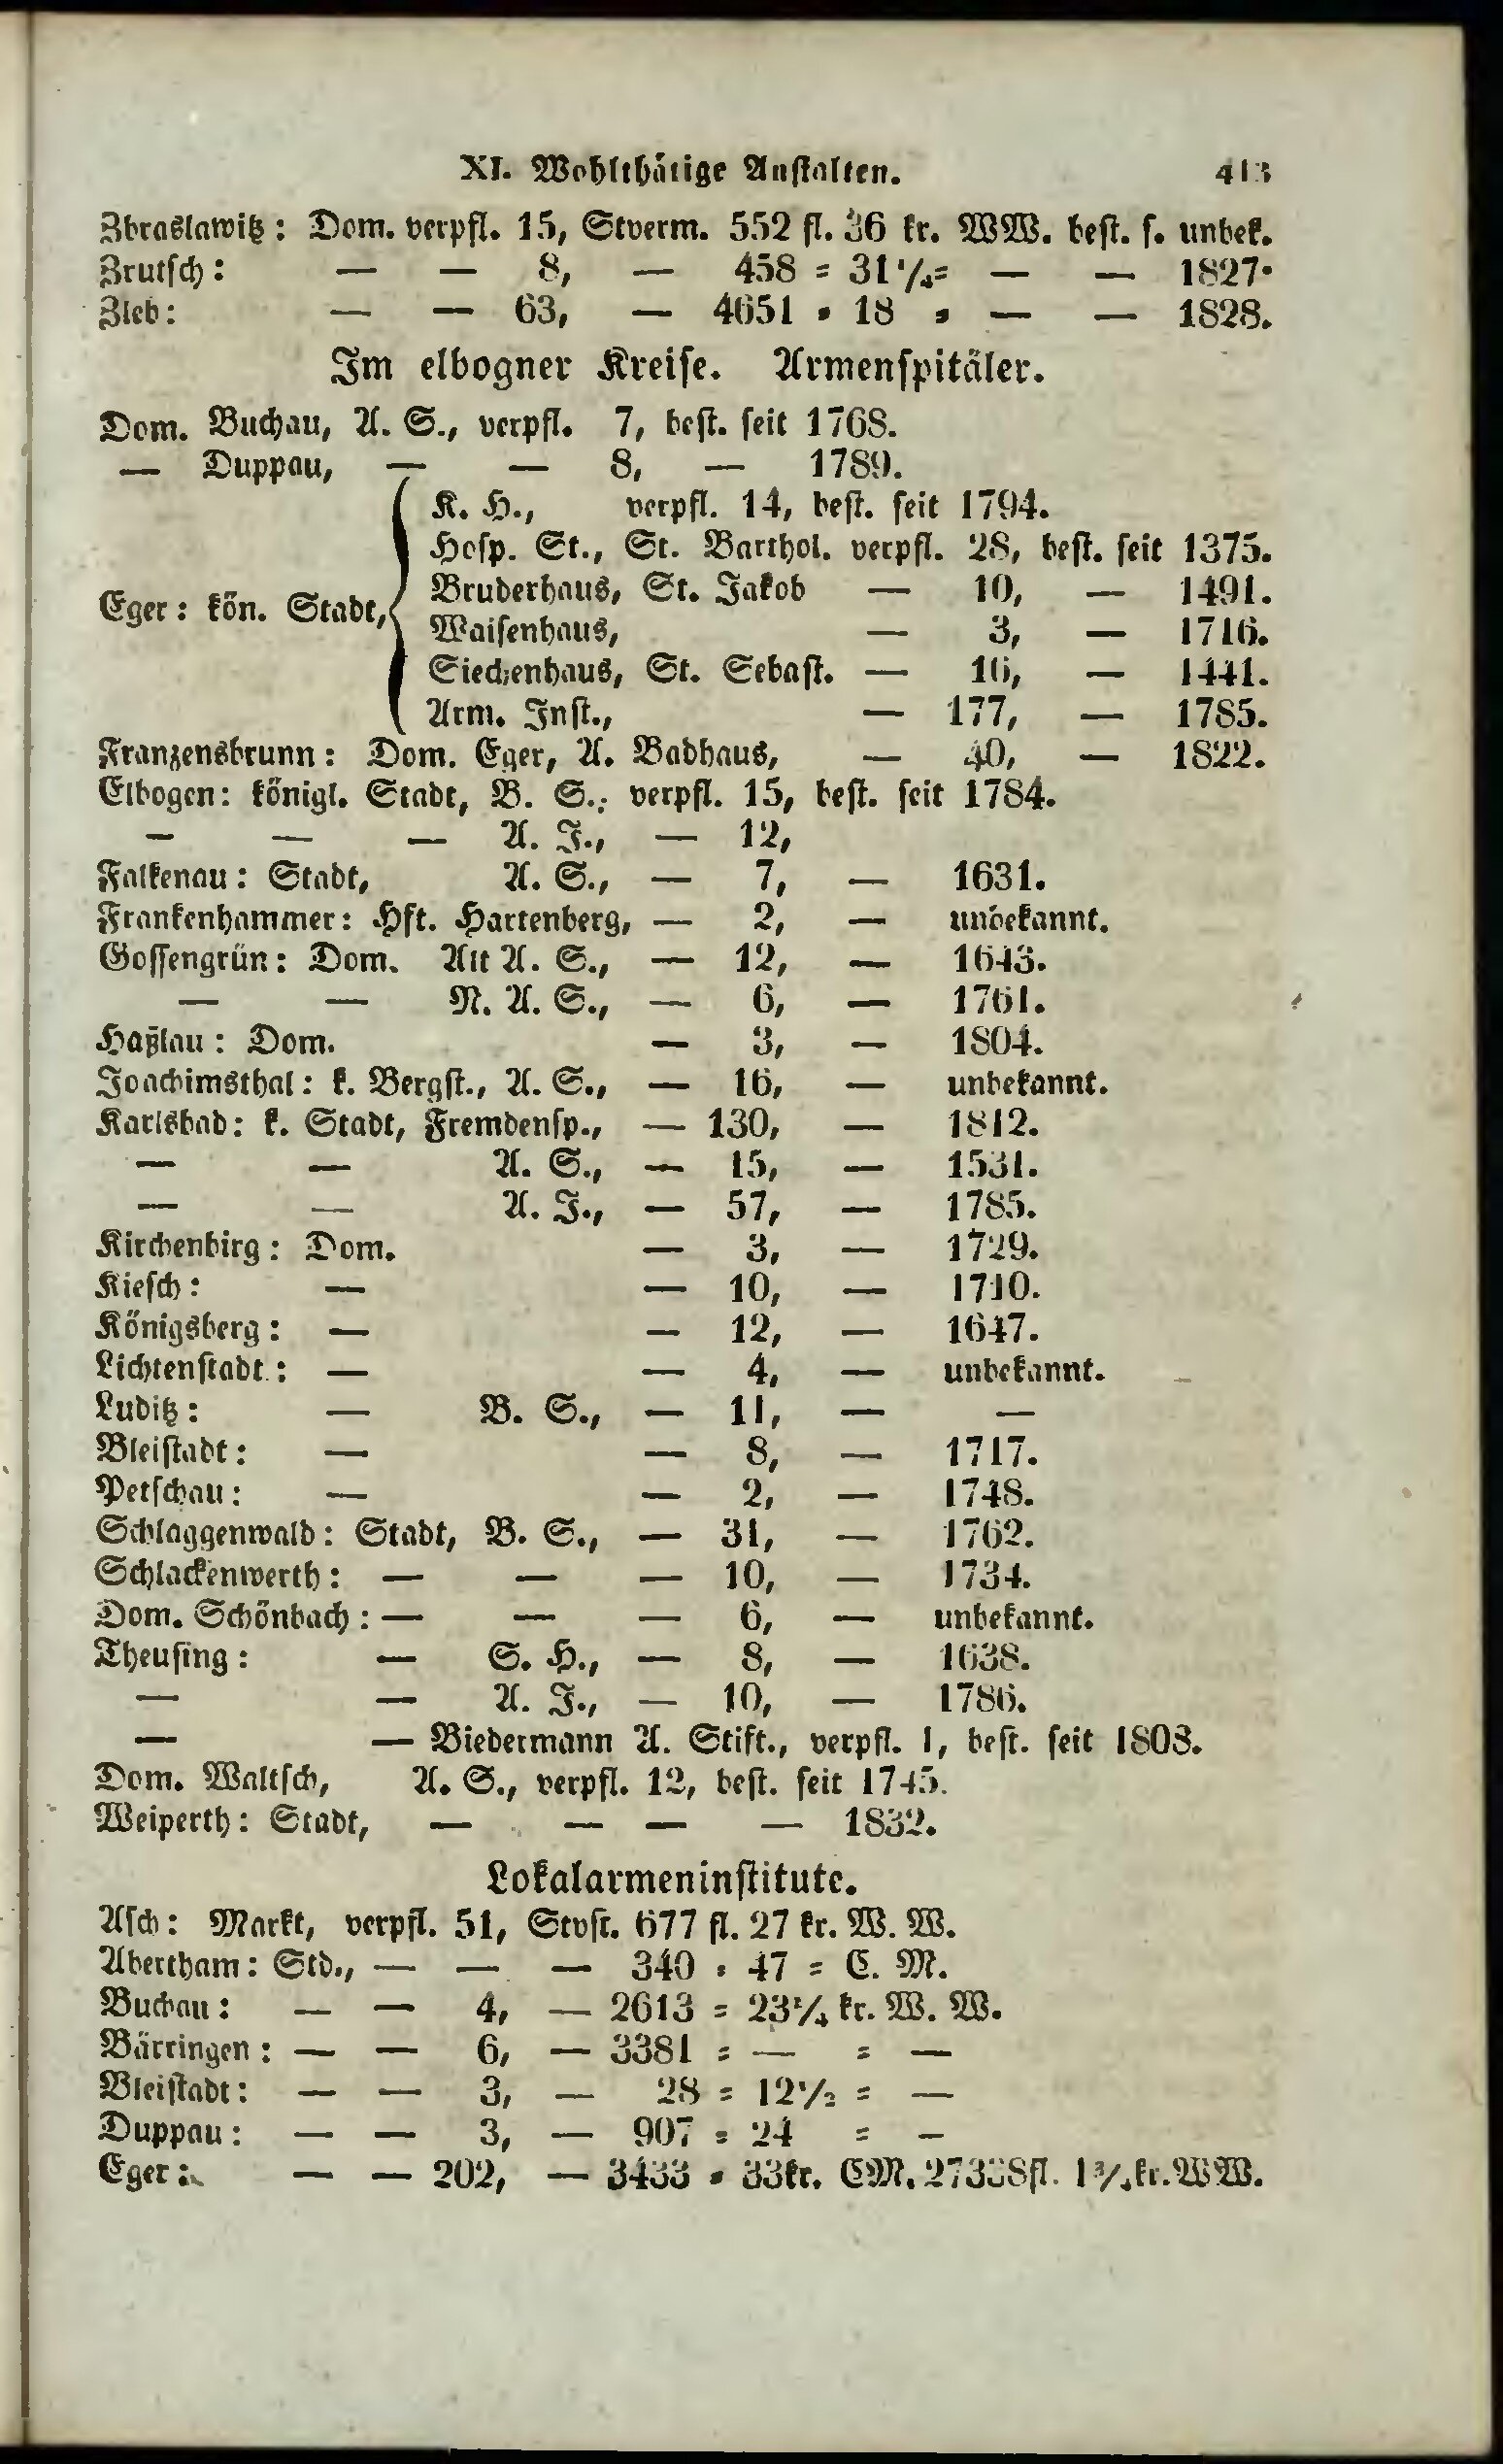 XI. Wohlthätige Anstalten. 413
Zbraslawitz: Dom. verpfl. 15, Stverm. 552 fl. 36 kr. WW. best. s. unbek.
Zrutsch: — — 8, — 458 = 31¼= — — 1827.
Zleb: — — 63, — 4651 = 18 = — — 1828.
Im elbogner Kreise. Armenspitäler.
Dom. Buchau, A. S., verpfl. 7, best. seit 1768.
— Duppau, — — 8, — 1789.
K. H., verpfl. 14, best. seit 1794.
Hosp. St., St. Barthol. verpfl. 28, best. seit 1375.
Bruderhaus, St. Jakob — 10, — 1491.
Eger: kön. Stadt,
Waisenhaus, — 3, — 1716.
Siechenhaus, St. Sebast. — 16, — 1441.
Arm. Inst., — 177, — 1785.
Franzensbrunn: Dom. Eger, A. Badhaus, — 40, — 1822.
Elbogen: königl. Stadt, B. S., verpfl. 15, best. seit 1784.
— — — A. J., — 12,
Falkenau: Stadt, A. S., — 7, — 1631.
Frankenhammer: Hft. Hartenberg, — 2, — unbekannt.
Gossengrün: Dom. Alt A. S., — 12, — 1643.
— — N. A. S., — 6, — 1761.
Haßlau: Dom. — 3, — 1804.
Joachimsthal: k. Bergst., A. S., — 16, — unbekannt.
Karlsbad: k. Stadt, Fremdensp., — 130, — 1812.
— — A. S., — 15, — 1531.
— — A. J., — 57, — 1785.
Kirchenbirg: Dom. — 3, — 1729.
Kiesch: — — 10, — 1710.
Königsberg: — — 12, — 1647.
Lichtenstadt: — — 4, — unbekannt.
Luditz: — B. S., — 11, — —
Bleistadt: — — 8, — 1717.
Petschau: — — 2, — 1748.
Schlaggenwald: Stadt, B. S., — 31, — 1762.
Schlackenwerth: — — — 10, — 1734.
Dom. Schönbach: — — — 6, — unbekannt.
Theusing: — S. H., — 8, — 1638.
— — A. J., — 10, — 1786.
— — Biedermann A. Stift., verpfl. 1, best. seit 1803.
Dom. Waltsch, A. S., verpfl. 12, best. seit 1745.
Weiperth: Stadt, — — — — 1832.
Lokalarmeninstitute.
Asch: Markt, verpfl. 51, Stvst. 677 fl. 27 kr. W. W.
Abertham: Std., — — — 340 = 47 = C. M.
Buchau: — — 4, — 2613 = 23¼ kr. W. W.
Bärringen: — — 6, — 3381 = — = —
Bleistadt: — — 3, — 28 = 12½ = —
Duppau: — — 3, — 907 = 24 = —
Eger: — — 202, — 3433 = 33kr. CM. 27338fl. 1¾kr. WW.